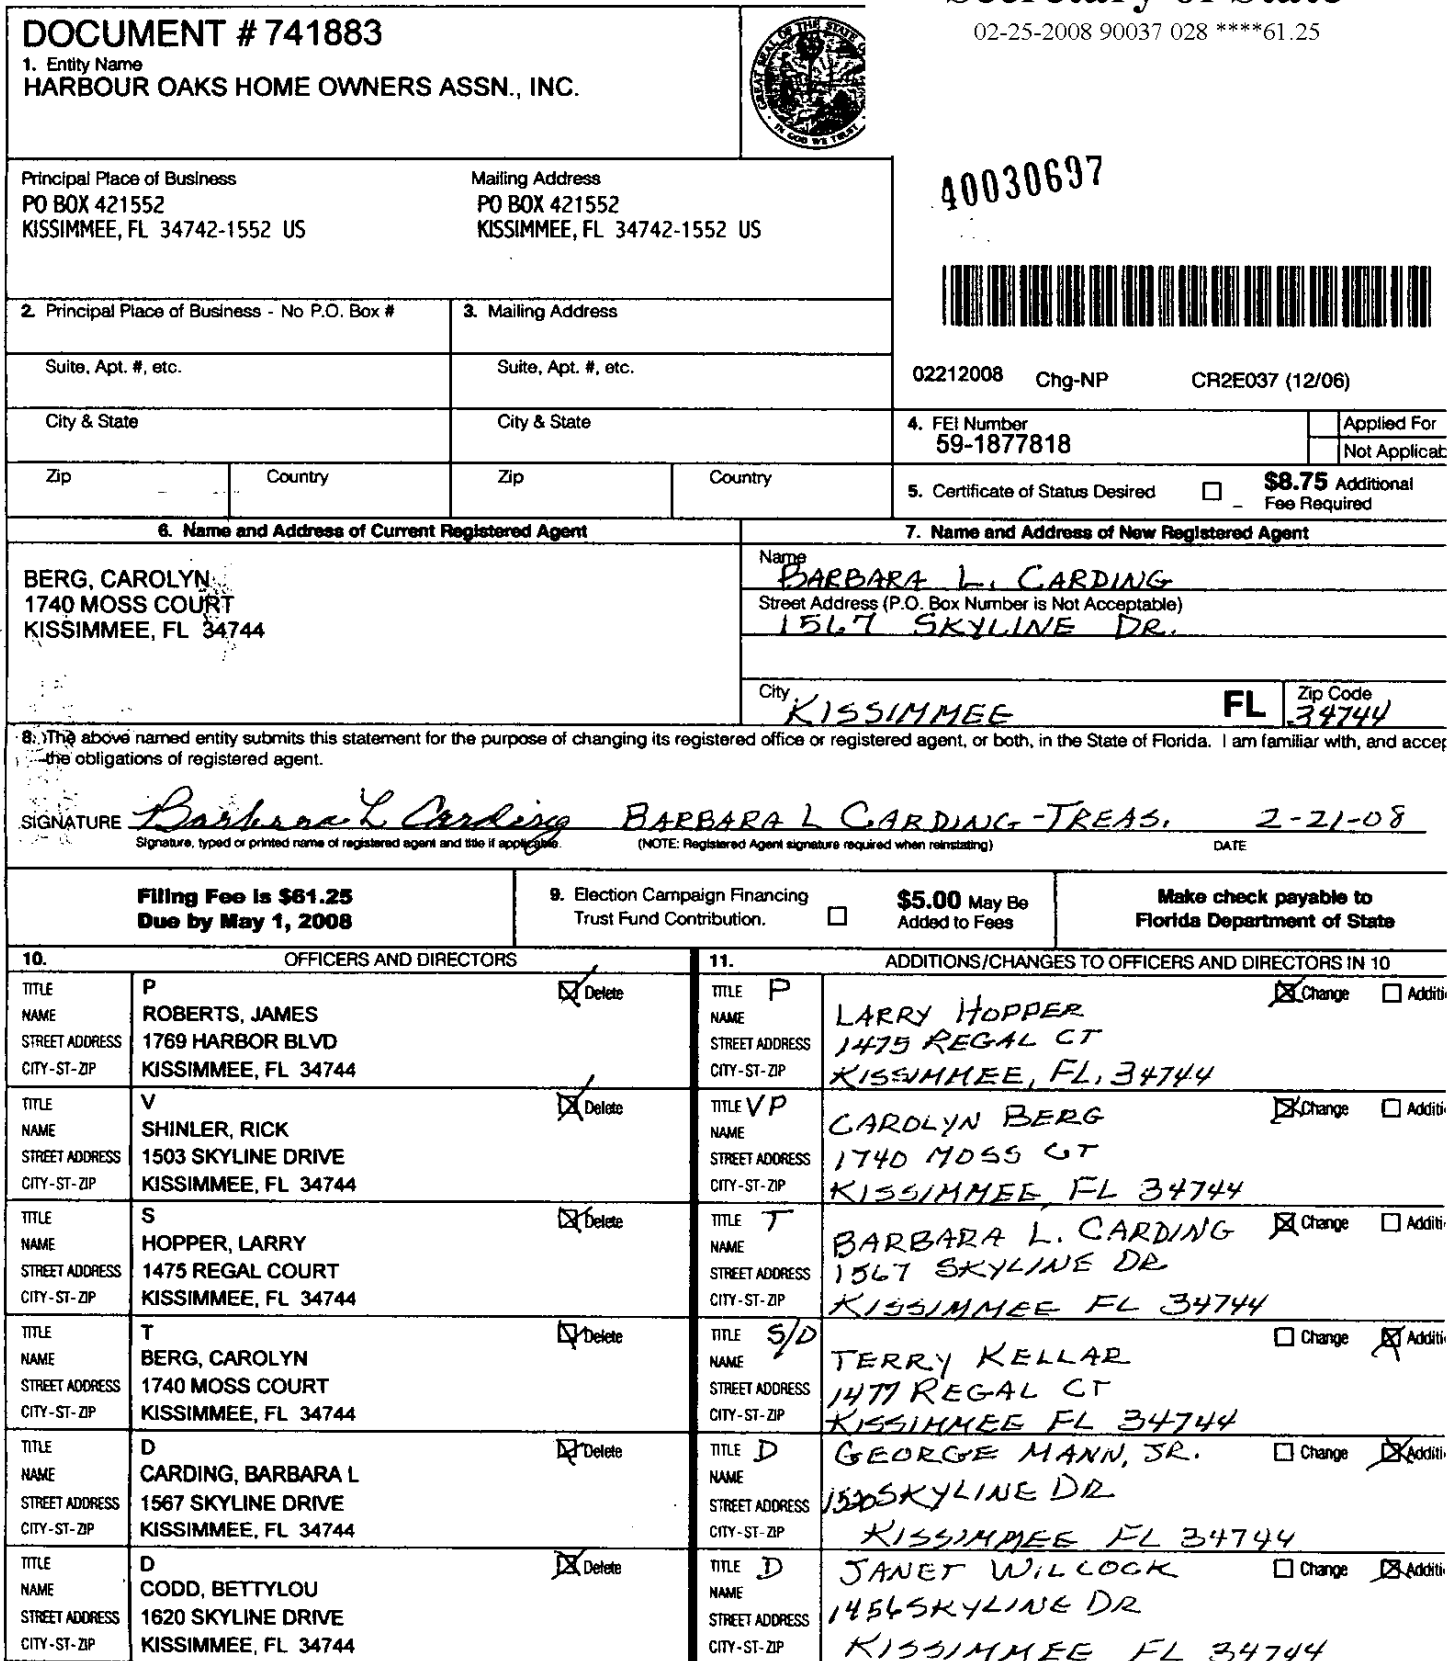 Secretary of State
02-25-2008 90037 028 ****61.25
DOCUMENT # 741883
1. Entity Name
HARBOUR OAKS HOME OWNERS ASSN., INC.
GREAT SEAL OF THE STATE
IN GOD WE TRUST
Principal Place of Business
PO BOX 421552
KISSIMMEE, FL 34742-1552 US
Mailing Address
PO BOX 421552
KISSIMMEE, FL 34742-1552 US
40030697
2. Principal Place of Business - No P.O. Box #
3. Mailing Address
Suite, Apt. #, etc.
Suite, Apt. #, etc.
02212008 Chg-NP CR2E037 (12/06)
City & State
City & State
4. FEI Number
59-1877818
Applied For
Not Applicab
Zip Country
Zip Country
5. Certificate of Status Desired
$8.75 Additional
Fee Required
6. Name and Address of Current Registered Agent
BERG, CAROLYN
1740 MOSS COURT
KISSIMMEE, FL 34744
7. Name and Address of New Registered Agent
Name
BARBARA L. CARDING
Street Address (P.O. Box Number is Not Acceptable)
1567 SKYLINE DR.
City KISSIMMEE FL Zip Code 34744
8. The above named entity submits this statement for the purpose of changing its registered office or registered agent, or both, in the State of Florida. I am familiar with, and accep
the obligations of registered agent.
SIGNATURE Barbara L Carding BARBARA L CARDING-TREAS. 2-21-08
Signature, typed or printed name of registered agent and title if applicable. (NOTE: Registered Agent signature required when reinstating) DATE
Filing Fee is $61.25
Due by May 1, 2008
9. Election Campaign Financing
Trust Fund Contribution.
$5.00 May Be
Added to Fees
Make check payable to
Florida Department of State
10. OFFICERS AND DIRECTORS
TITLE P Delete
NAME ROBERTS, JAMES
STREET ADDRESS 1769 HARBOR BLVD
CITY-ST-ZIP KISSIMMEE, FL 34744
TITLE V Delete
NAME SHINLER, RICK
STREET ADDRESS 1503 SKYLINE DRIVE
CITY-ST-ZIP KISSIMMEE, FL 34744
TITLE S Delete
NAME HOPPER, LARRY
STREET ADDRESS 1475 REGAL COURT
CITY-ST-ZIP KISSIMMEE, FL 34744
TITLE T Delete
NAME BERG, CAROLYN
STREET ADDRESS 1740 MOSS COURT
CITY-ST-ZIP KISSIMMEE, FL 34744
TITLE D Delete
NAME CARDING, BARBARA L
STREET ADDRESS 1567 SKYLINE DRIVE
CITY-ST-ZIP KISSIMMEE, FL 34744
TITLE D Delete
NAME CODD, BETTYLOU
STREET ADDRESS 1620 SKYLINE DRIVE
CITY-ST-ZIP KISSIMMEE, FL 34744
11. ADDITIONS/CHANGES TO OFFICERS AND DIRECTORS IN 10
TITLE P Change Additi
NAME LARRY HOPPER
STREET ADDRESS 1475 REGAL CT
CITY-ST-ZIP KISSIMMEE, FL, 34744
TITLE VP Change Additi
NAME CAROLYN BERG
STREET ADDRESS 1740 MOSS CT
CITY-ST-ZIP KISSIMMEE FL 34744
TITLE T Change Additi
NAME BARBARA L. CARDING
STREET ADDRESS 1567 SKYLINE DR
CITY-ST-ZIP KISSIMMEE FL 34744
TITLE S/D Change Additi
NAME TERRY KELLAR
STREET ADDRESS 1477 REGAL CT
CITY-ST-ZIP KISSIMMEE FL 34744
TITLE D Change Additi
NAME GEORGE MANN, JR.
STREET ADDRESS 1520 SKYLINE DR
CITY-ST-ZIP KISSIMMEE FL 34744
TITLE D Change Additi
NAME JANET WILCOCK
STREET ADDRESS 1456 SKYLINE DR
CITY-ST-ZIP KISSIMMEE FL 34744